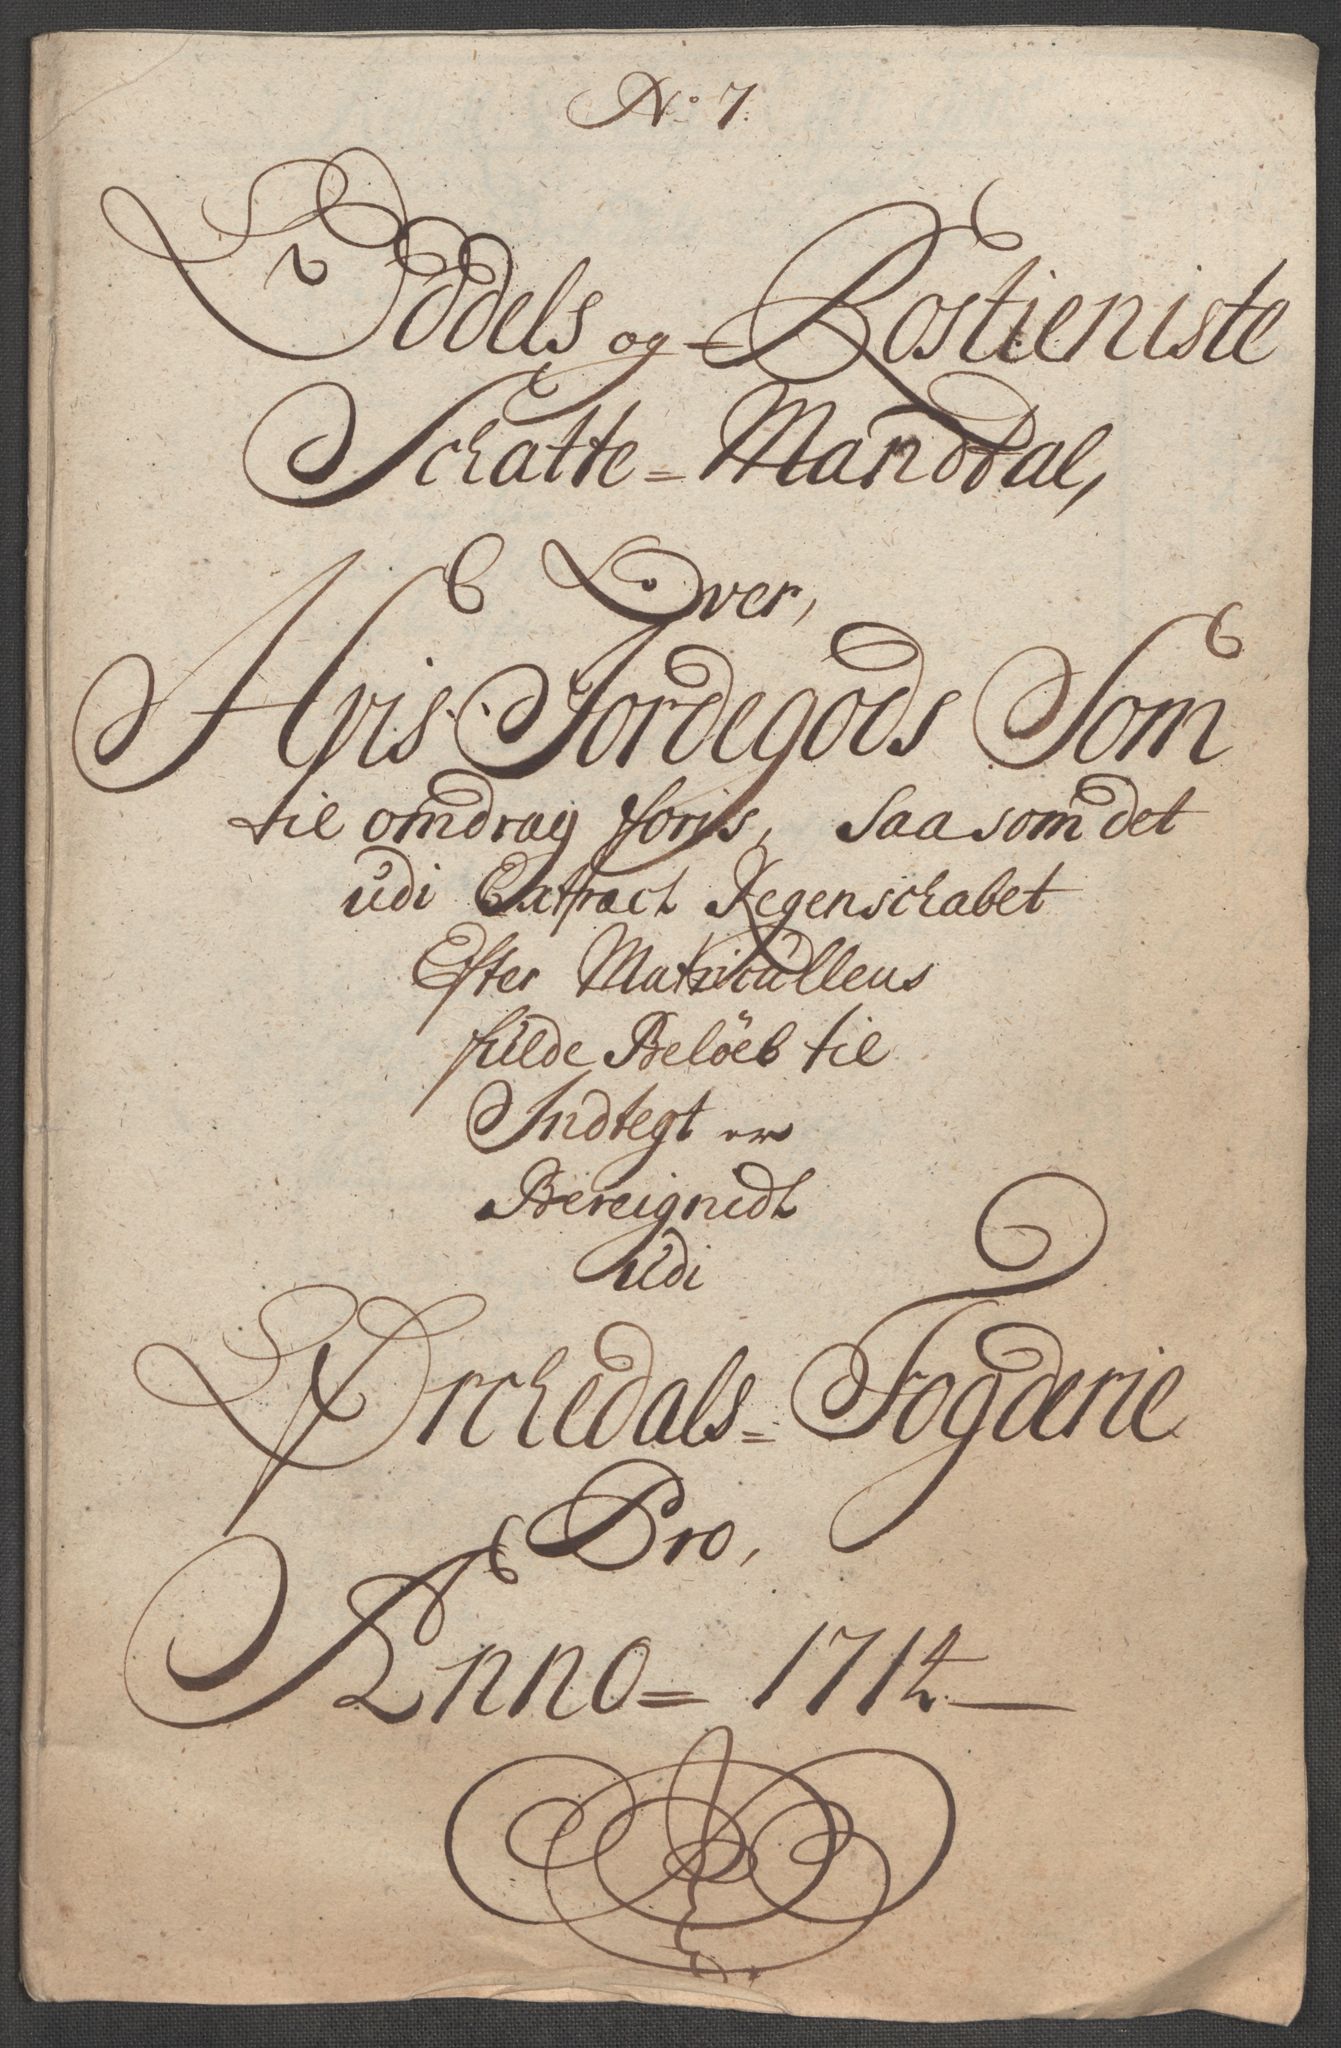 No 7.
Oddels og Rostieniste
Schatte= Mandtal,
Over,
Hvis Jordegods Som
til omdrag foriis, Saasom det
udi Extract Regenschabet
Efter Matriculens
fulde Beløeb til
Indtegt er
Bereignedt
Udi
Orchedals= Fogderie
Pro,
Anno= 1714